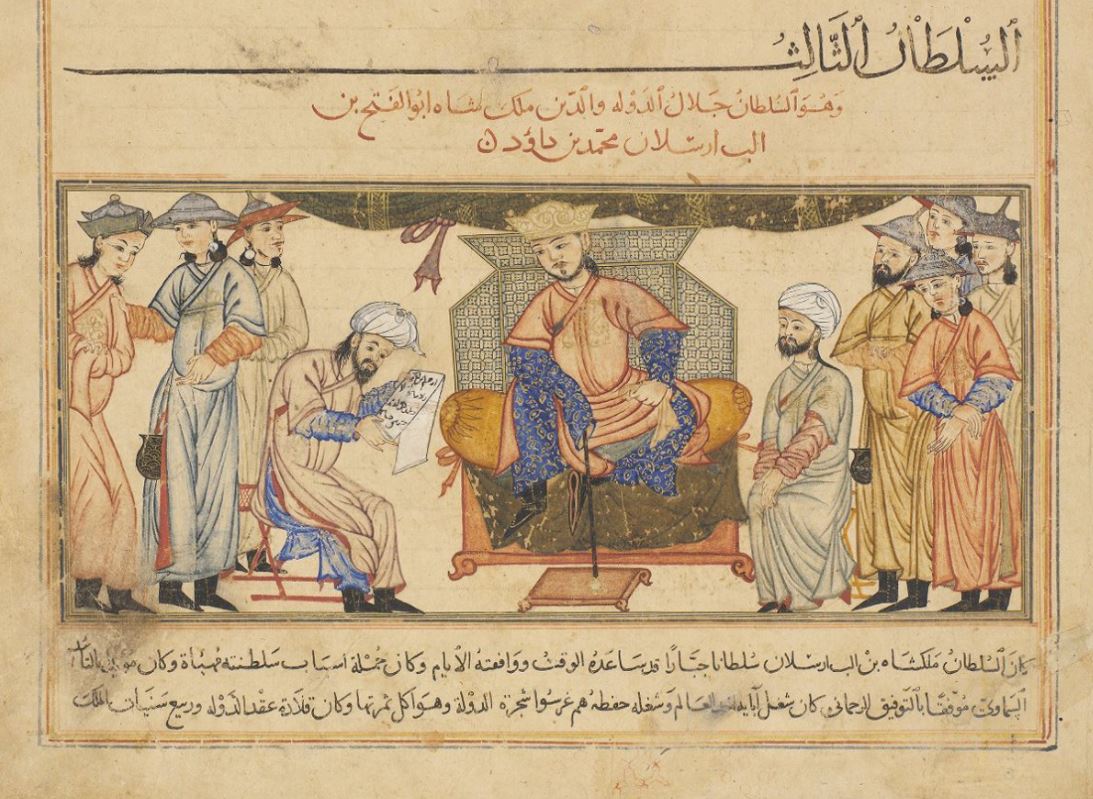 السلطان الثالث
وهو السلطان جلال الدوله والدين ملكشاه ابو الفتح بن
الب ارسلان محمد بن داؤد
كان السلطان ملكشاه بن الب ارسلان سلطانا جبارا قد ساعده الوقت ووافقته الايام وكان جملة اسباب سلطنته مهيأة وكان
السماوي موفقا بالتوفيق الرحماني كان شغل آبايه العالم وشغله حفظه هم غرسوا شجرة الدولة وهو اكل ثمرتها وكان قلادة عقد الدوله وربيع الملك